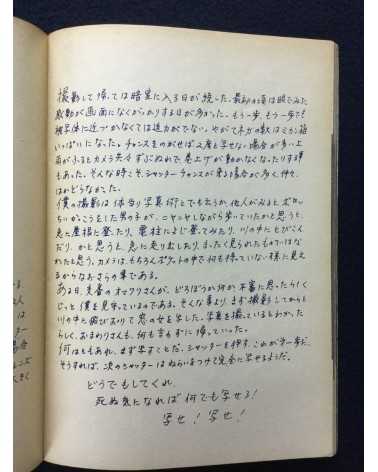 撮影して帰っては暗室に入る日が続いた。最初の頃は眼でみた
感動が画面になくがっかりする日が多かった。もう一歩、もう一歩で!
被写体に近づかなくては迫力がでない。やがてネガの数はミカン箱
いっぱいになった。チャンスをのがせば2度と写せない場合が多い上
雨がふるとカメラ共々ずぶぬれで巻上げが動かなくなったりする時
もあった。そんな時こそシャッターチャンスが来る場合が多く、仲々
はかどらなかった。
僕の撮影は体当り写真術とでも云うか、他人がみるとボロっ
ちいかっこうをした男の子が、ニヤニヤしながら歩いていたかと思うと、
急に屋根に登たり、電柱によじ登ってみたり、川の中にとびこん
だり、かと思うと、急に走り出したり、まったく見られたものではな
かったと思う。カメラはもちろんポケットの中で何も持っていない様に見え
るからなおさらの事である。
ある日、交番のオマワリさんが、どろぼうか何か不審に思ったらしく
じっと僕を見守っているのである。そんな事より、まず撮影してからと
川の中に飛びおりて窓の女を写した。写真を撮っているとわかった
らしく、おまわりさんも、何も言わずに帰っていった。
何はともあれ、まず写すことだ。シャッターを押す、これが第一歩だ。
そうすれば、次のシャッターはねらいをつけて完全に写せるはずだ。
どうでもしてくれ、
死ぬ気になれば何でも写せる!
写せ!写せ!